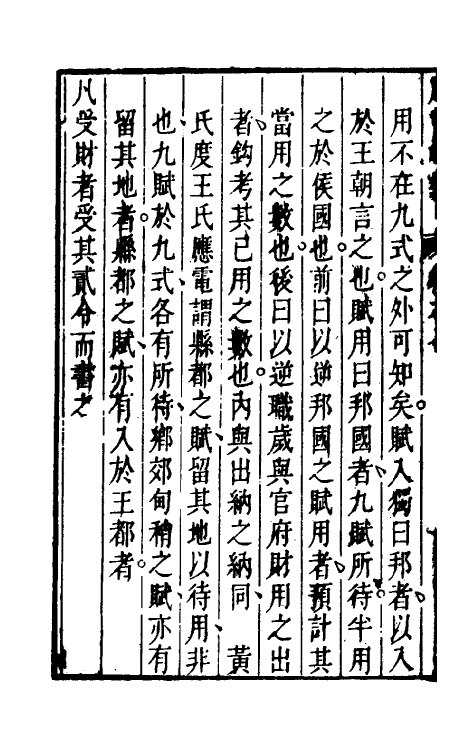 用不在九式之外可知矣賦入獨曰邦者以入
於王朝言之也賦用曰邦國者九賦所待半用
之於侯國也前曰以逆邦國之賦用者預計其
當用之數也後曰以逆職歲與官府財用之出
者鈎考其已用之數也內與出納之納同　黃
氏度王氏應電謂縣都之賦留其地以待用非
也九賦於九式各有所待鄉郊甸稍之賦亦有
留其地者縣都之賦亦有入於王都者
凡受財者受其貳令而書之